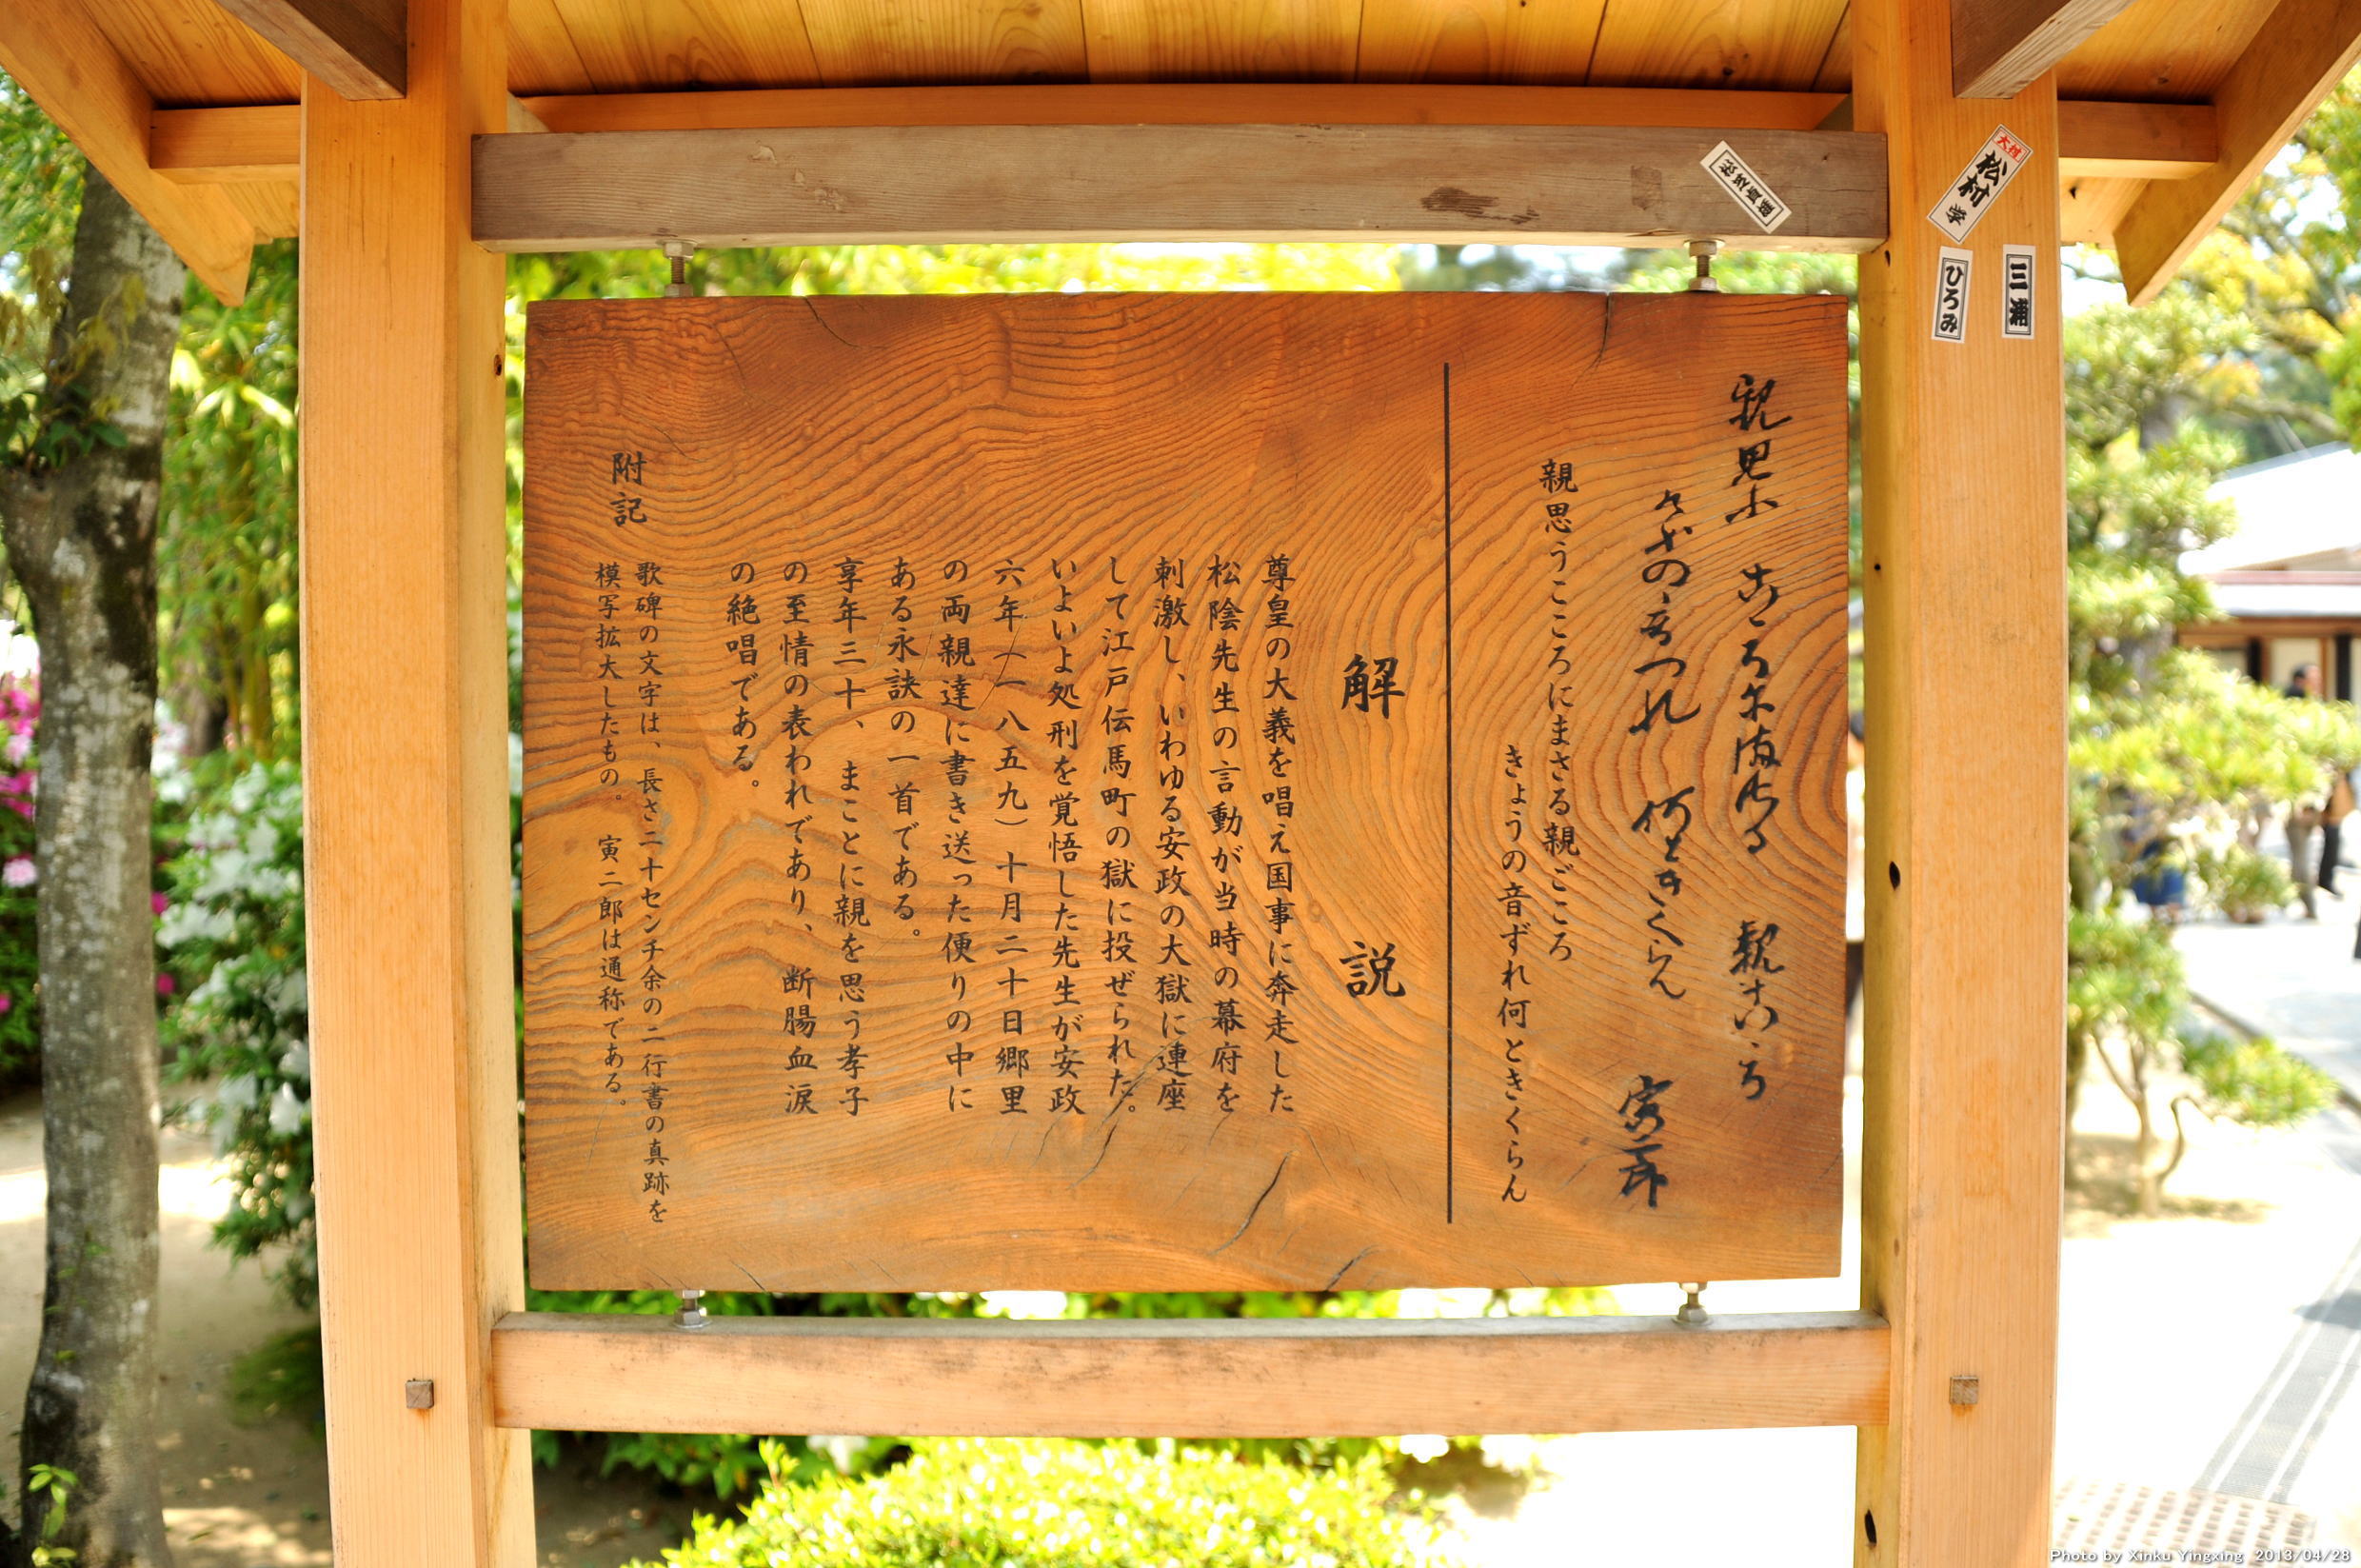 親思ふこゝろにまさる親古ゝろ
けふの音つれ何ときくらん
寅二郎
親思うこころにまさる親ごころ
きょうの音ずれ何ときくらん
解説
尊皇の大義を唱え国事に奔走した
松陰先生の言動が当時の幕府を
刺激し、いわゆる安政の大獄に連座
して江戸伝馬町の獄に投ぜられた。
いよいよ処刑を覚悟した先生が安政
六年(一八五九)十月二十日郷里
の両親達に書き送った便りの中に
ある永訣の一首である。
享年三十、まことに親を思う孝子
の至情の表われであり、断腸血涙
の絶唱である。
附記
歌碑の文字は、長さ二十センチ余の二行書の真跡を
模写拡大したもの。寅二郎は通称である。
大村
松村学
ひろみ
三浦
Photo by Xinku Yingxing 2013/04/28